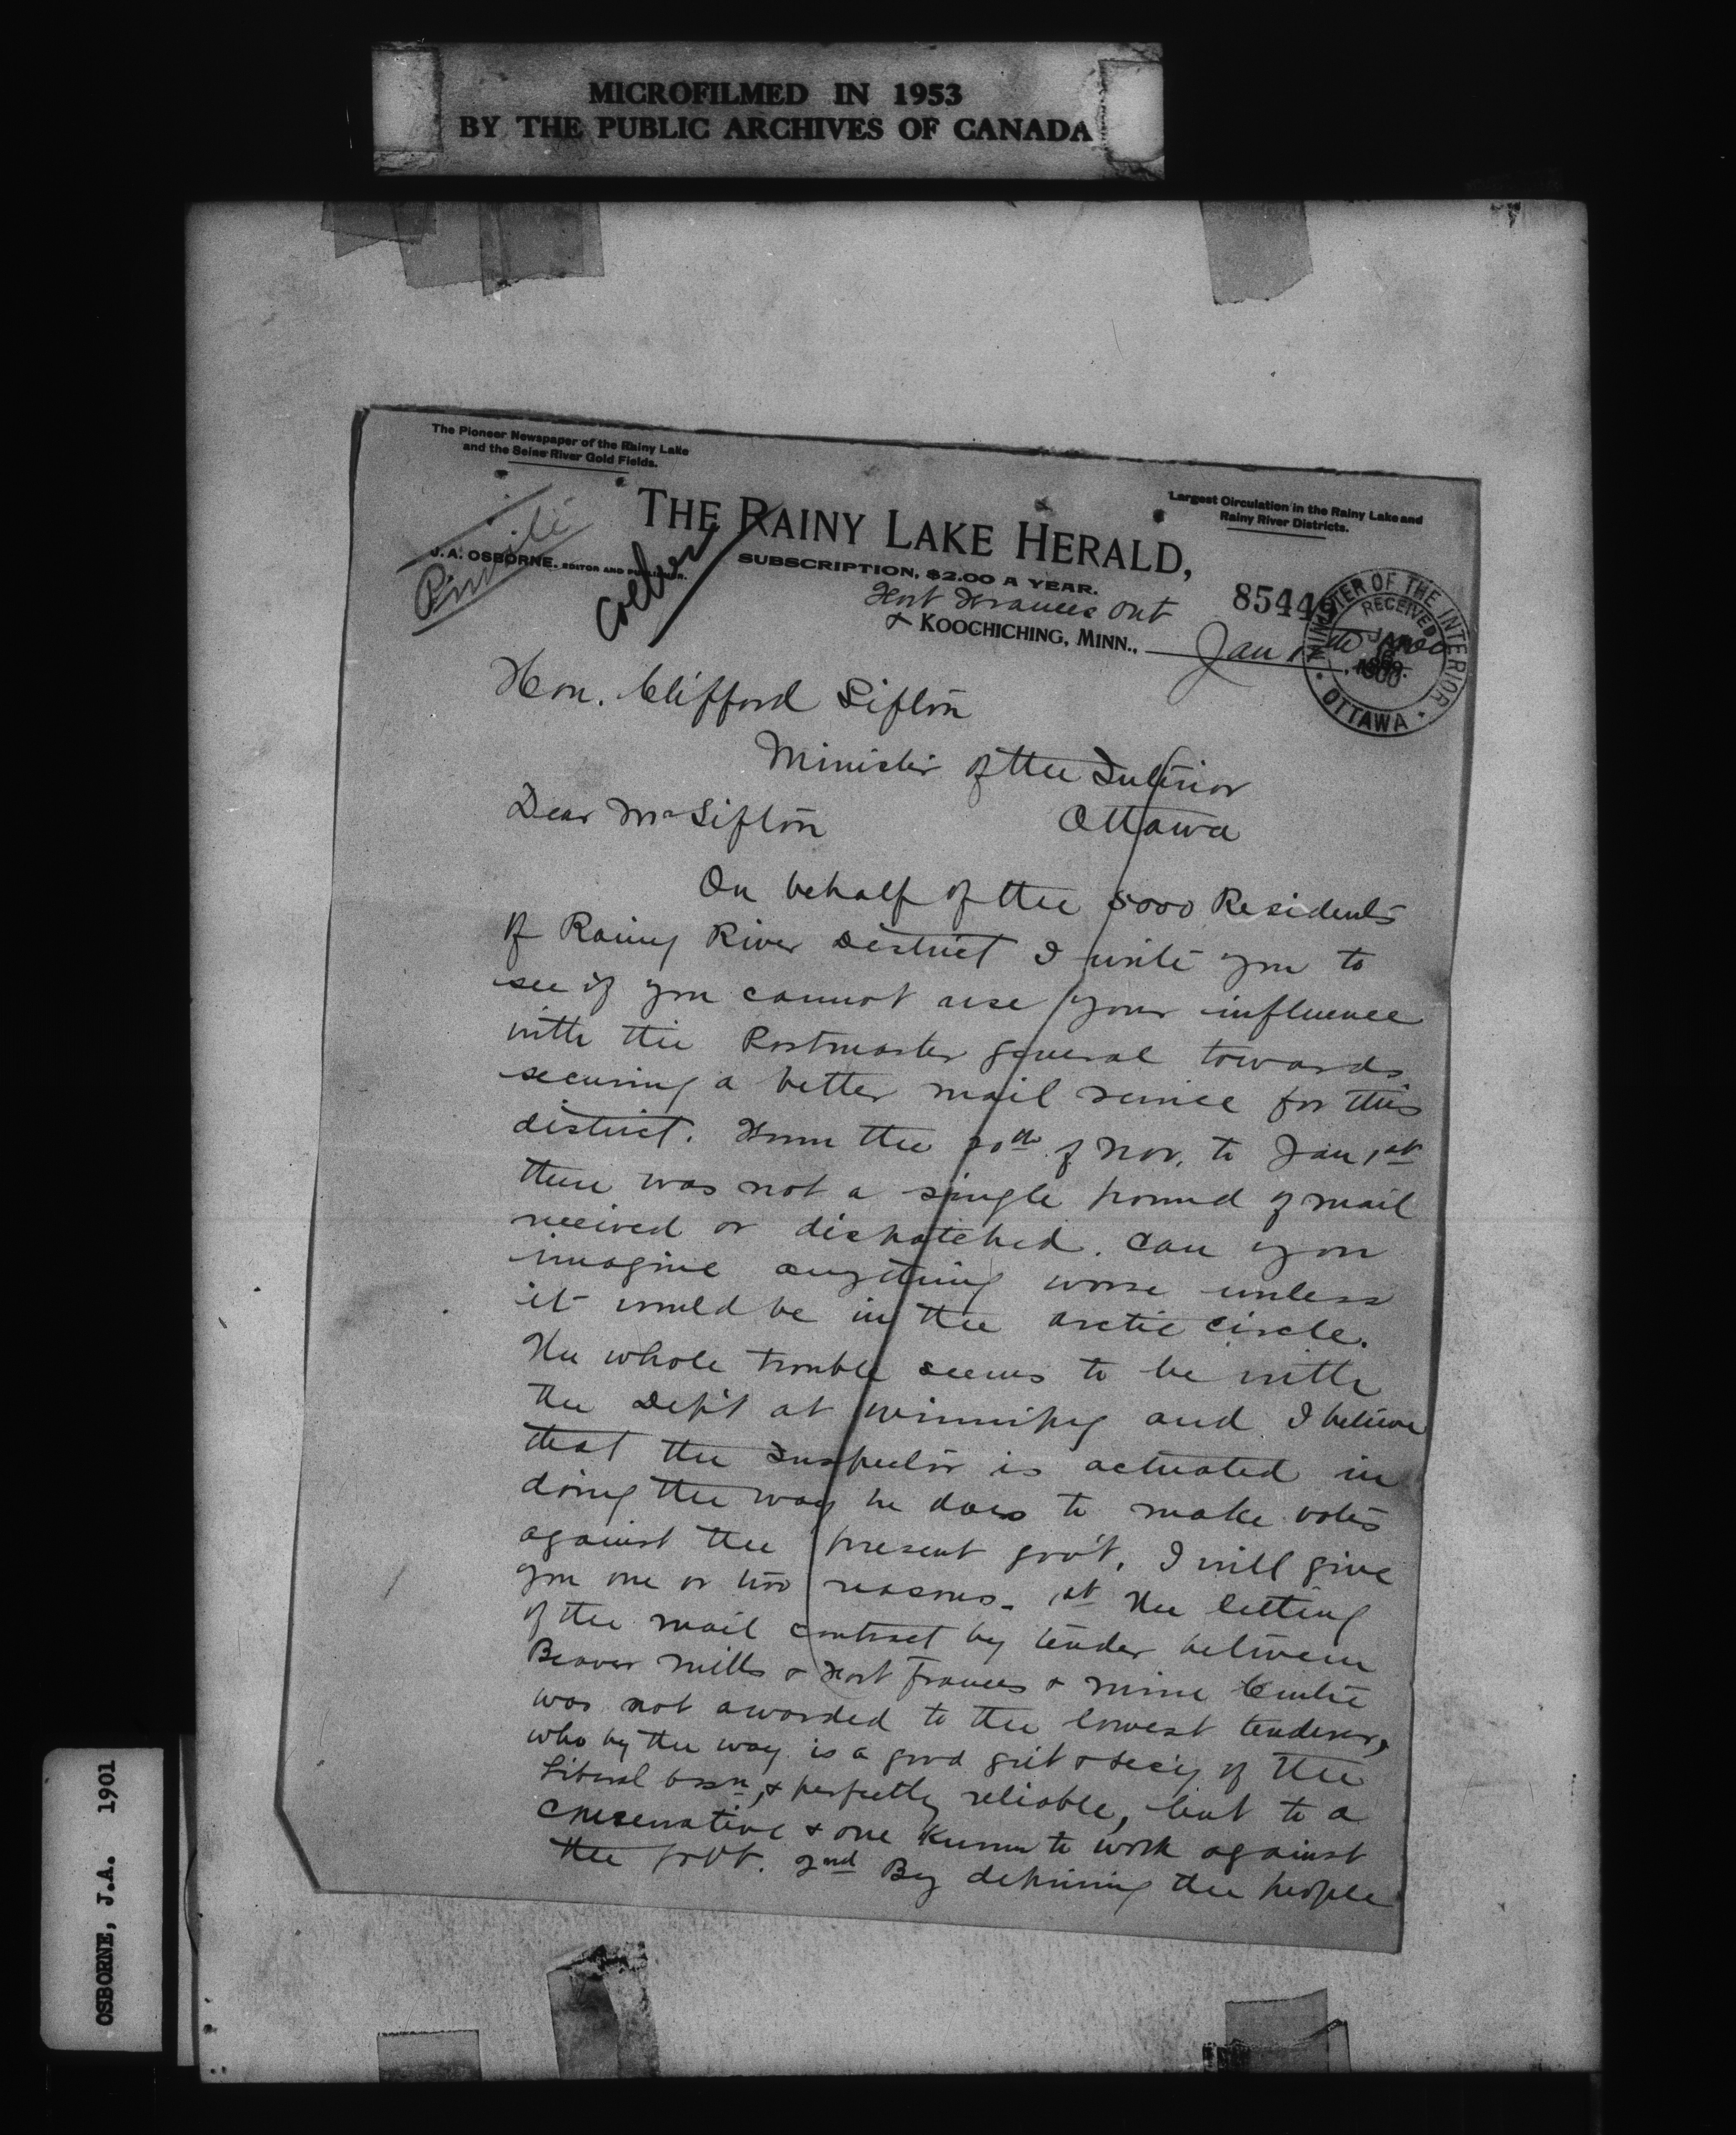 MICROFILMED IN 1953
BY THE PUBLIC ARCHIVES OF CANADA
The Pioneer Newspaper of the Rainy Lake
and the Seine River Gold Fields.
Largest Circulation in the Rainy Lake and
Rainy River Districts.
THE RAINY LAKE HERALD,
SUBSCRIPTION, $2.00 A YEAR.
J. A. OSBORNE, EDITOR AND PUBLISHER.
Private
Fort Frances Ont
& KOOCHICHING, MINN.,
Jan
8544
MINISTER OF THE INTERIOR
RECEIVED
JAN
1900
OTTAWA
Hon. Clifford Sifton
Minister of the Interior
Ottawa
Dear Mr Sifton
On behalf of the 5000 Residents
of Rainy River District I write you to
see if you cannot use your influence
with the Postmaster general towards
securing a better mail service for this
district. From the 20th of Nov. to Jan 1st
there was not a single pound of mail
received or dispatched. Can you
imagine anything worse unless
it would be in the arctic circle.
The whole trouble seems to be with
the Dep't at Winnipeg and I believe
that the Inspector is actuated in
doing the way he does to make votes
against the present gov't. I will give
you one or two reasons. 1st The letting
of the mail contract by tender between
Beaver Mills & Fort Frances & Mine Centre
was not awarded to the lowest tenderer,
who by the way is a good grit & Sec'y of the
Liberal Assn, & perfectly reliable, but to a
Conservative & one known to work against
the gov't. 2nd By depriving the people
OSBORNE, J.A. 1901